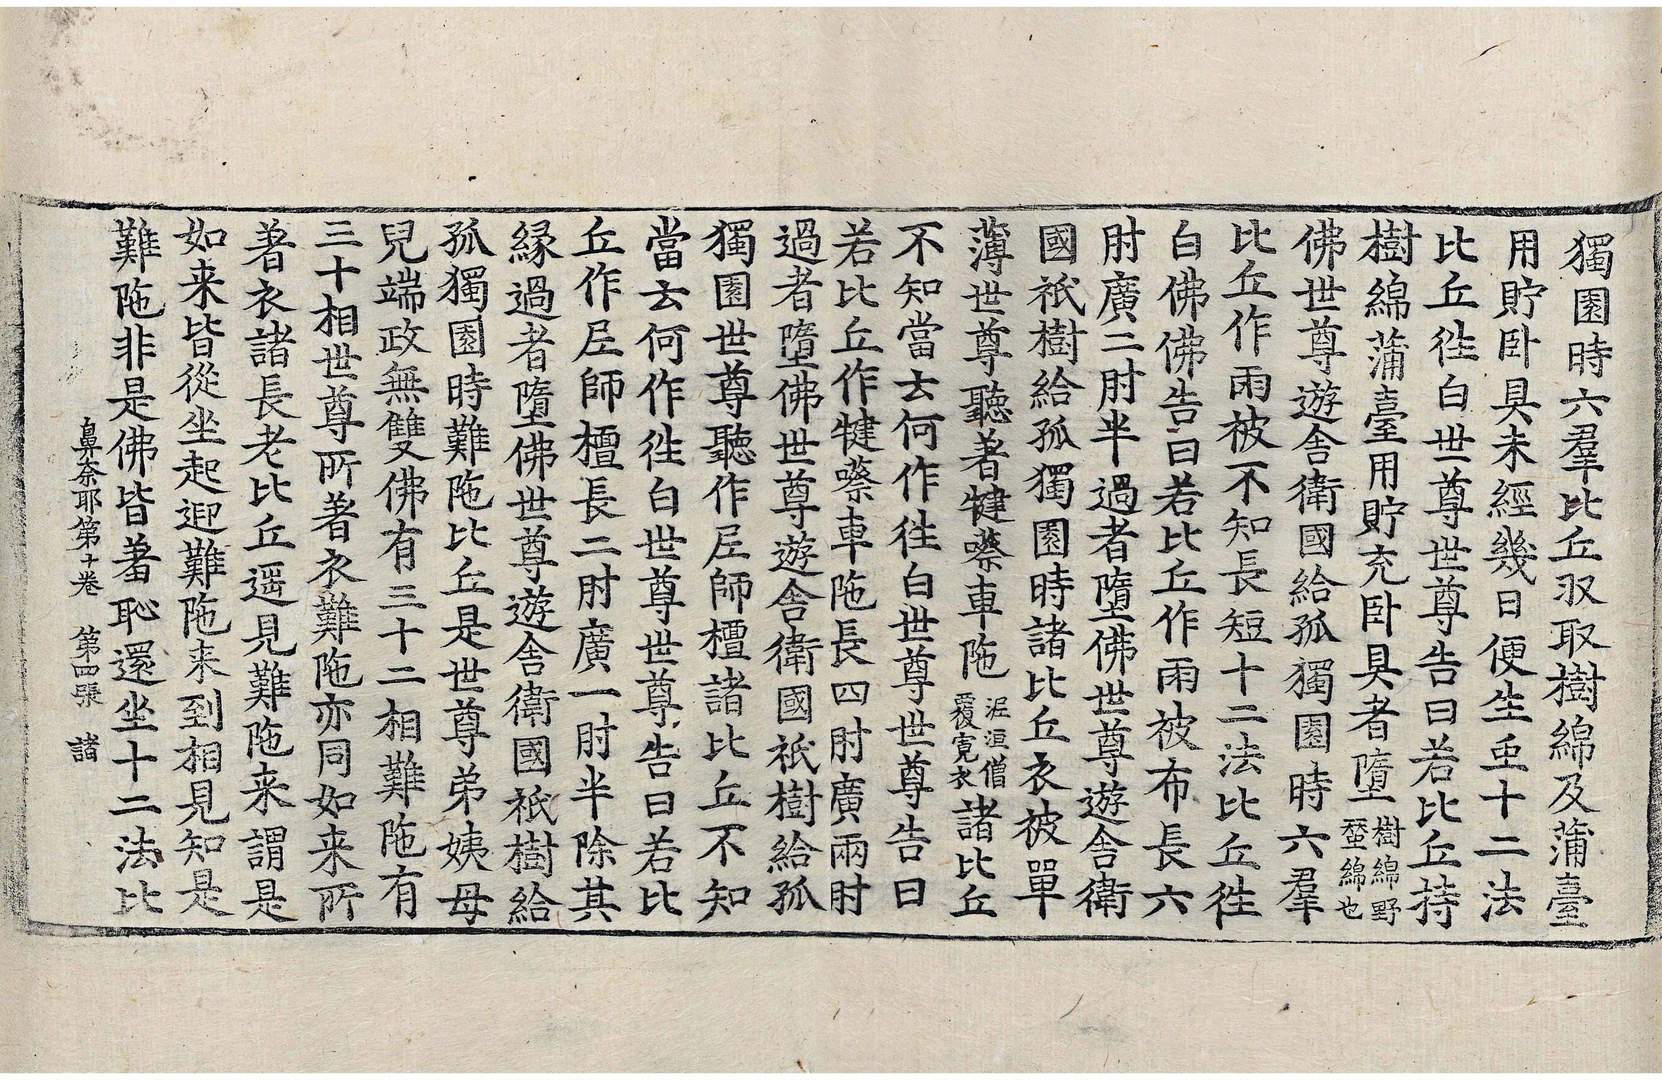 獨園時六羣比丘収取樹綿及蒲臺
用貯卧具未經幾日便生䖝十二法
比丘徃白世尊世尊告曰若比丘持
樹綿蒲臺用貯充卧具者墮樹綿野蚕綿也
佛世尊遊舍衛國給孤獨園時六羣
比丘作雨被不知長短十二法比丘徃
白佛佛告曰若比丘作雨被布長六
肘廣二肘半過者墮佛世尊遊舍衛
國祇樹給孤獨園時諸比丘衣被單
薄世尊聽著犍㘔車陁泥洹僧覆寛衣諸比丘
不知當云何作徃白世尊世尊告曰
若比丘作犍㘔車陁長四肘廣兩肘
過者墮佛世尊遊舍衛國祇樹給孤
獨園世尊聽作𡰱師檀諸比丘不知
當云何作徃白世尊世尊告曰若比
丘作𡰱師檀長二肘廣一肘半除其
緣過者墮佛世尊遊舍衛國祇樹給
孤獨園時難陁比丘是世尊弟姨母
兒端政無雙佛有三十二相難陁有
三十相世尊所著衣難陁亦同如来所
著衣諸長老比丘遥見難陁来謂是
如来皆從坐起迎難陁来到相見知是
難陁非是佛皆羞恥還坐十二法比
鼻奈耶第十卷 第四張 諸